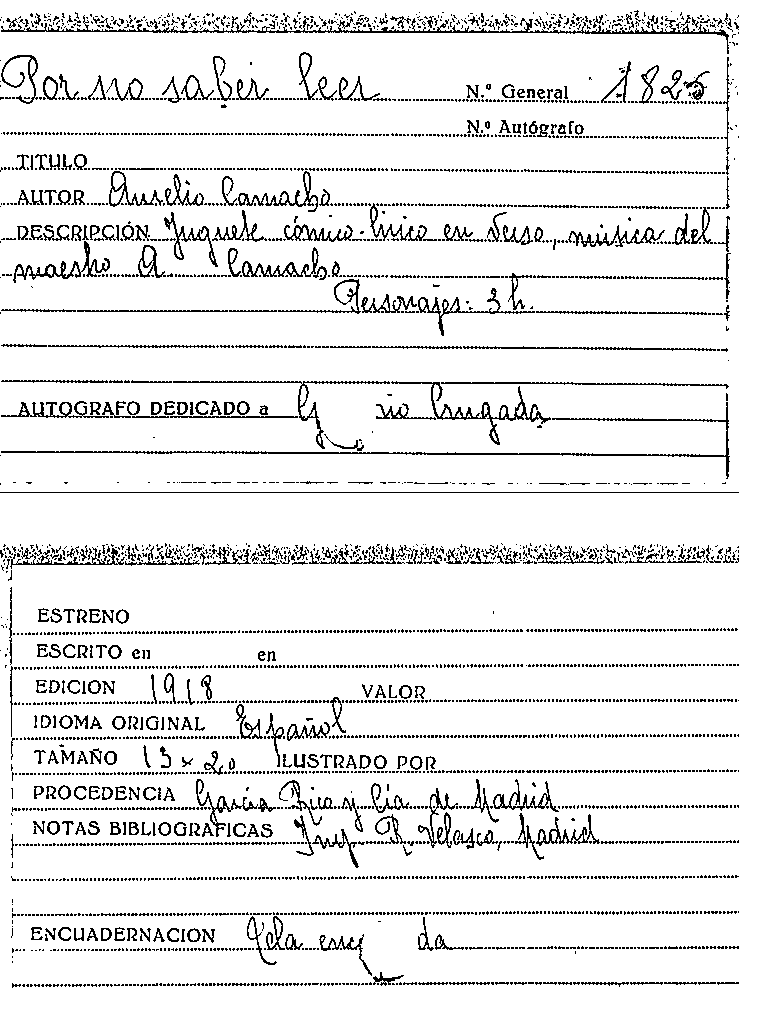 Por no saber leer N.º General 1825
N.º Autógrafo
TITULO
AUTOR Aurelio Camacho
DESCRIPCIÓN Juguete cómico-lírico en verso, música del
maestro A. Camacho
Personajes: 3 h.
AUTOGRAFO DEDICADO a rio Crugada
ESTRENO
ESCRITO en en
EDICION 1918 VALOR
IDIOMA ORIGINAL Español
TAMAÑO 13 x 20 ILUSTRADO POR
PROCEDENCIA García Rico y Cía de Madrid
NOTAS BIBLIOGRAFICAS Imp. R. Velasco, Madrid
ENCUADERNACION Tela da